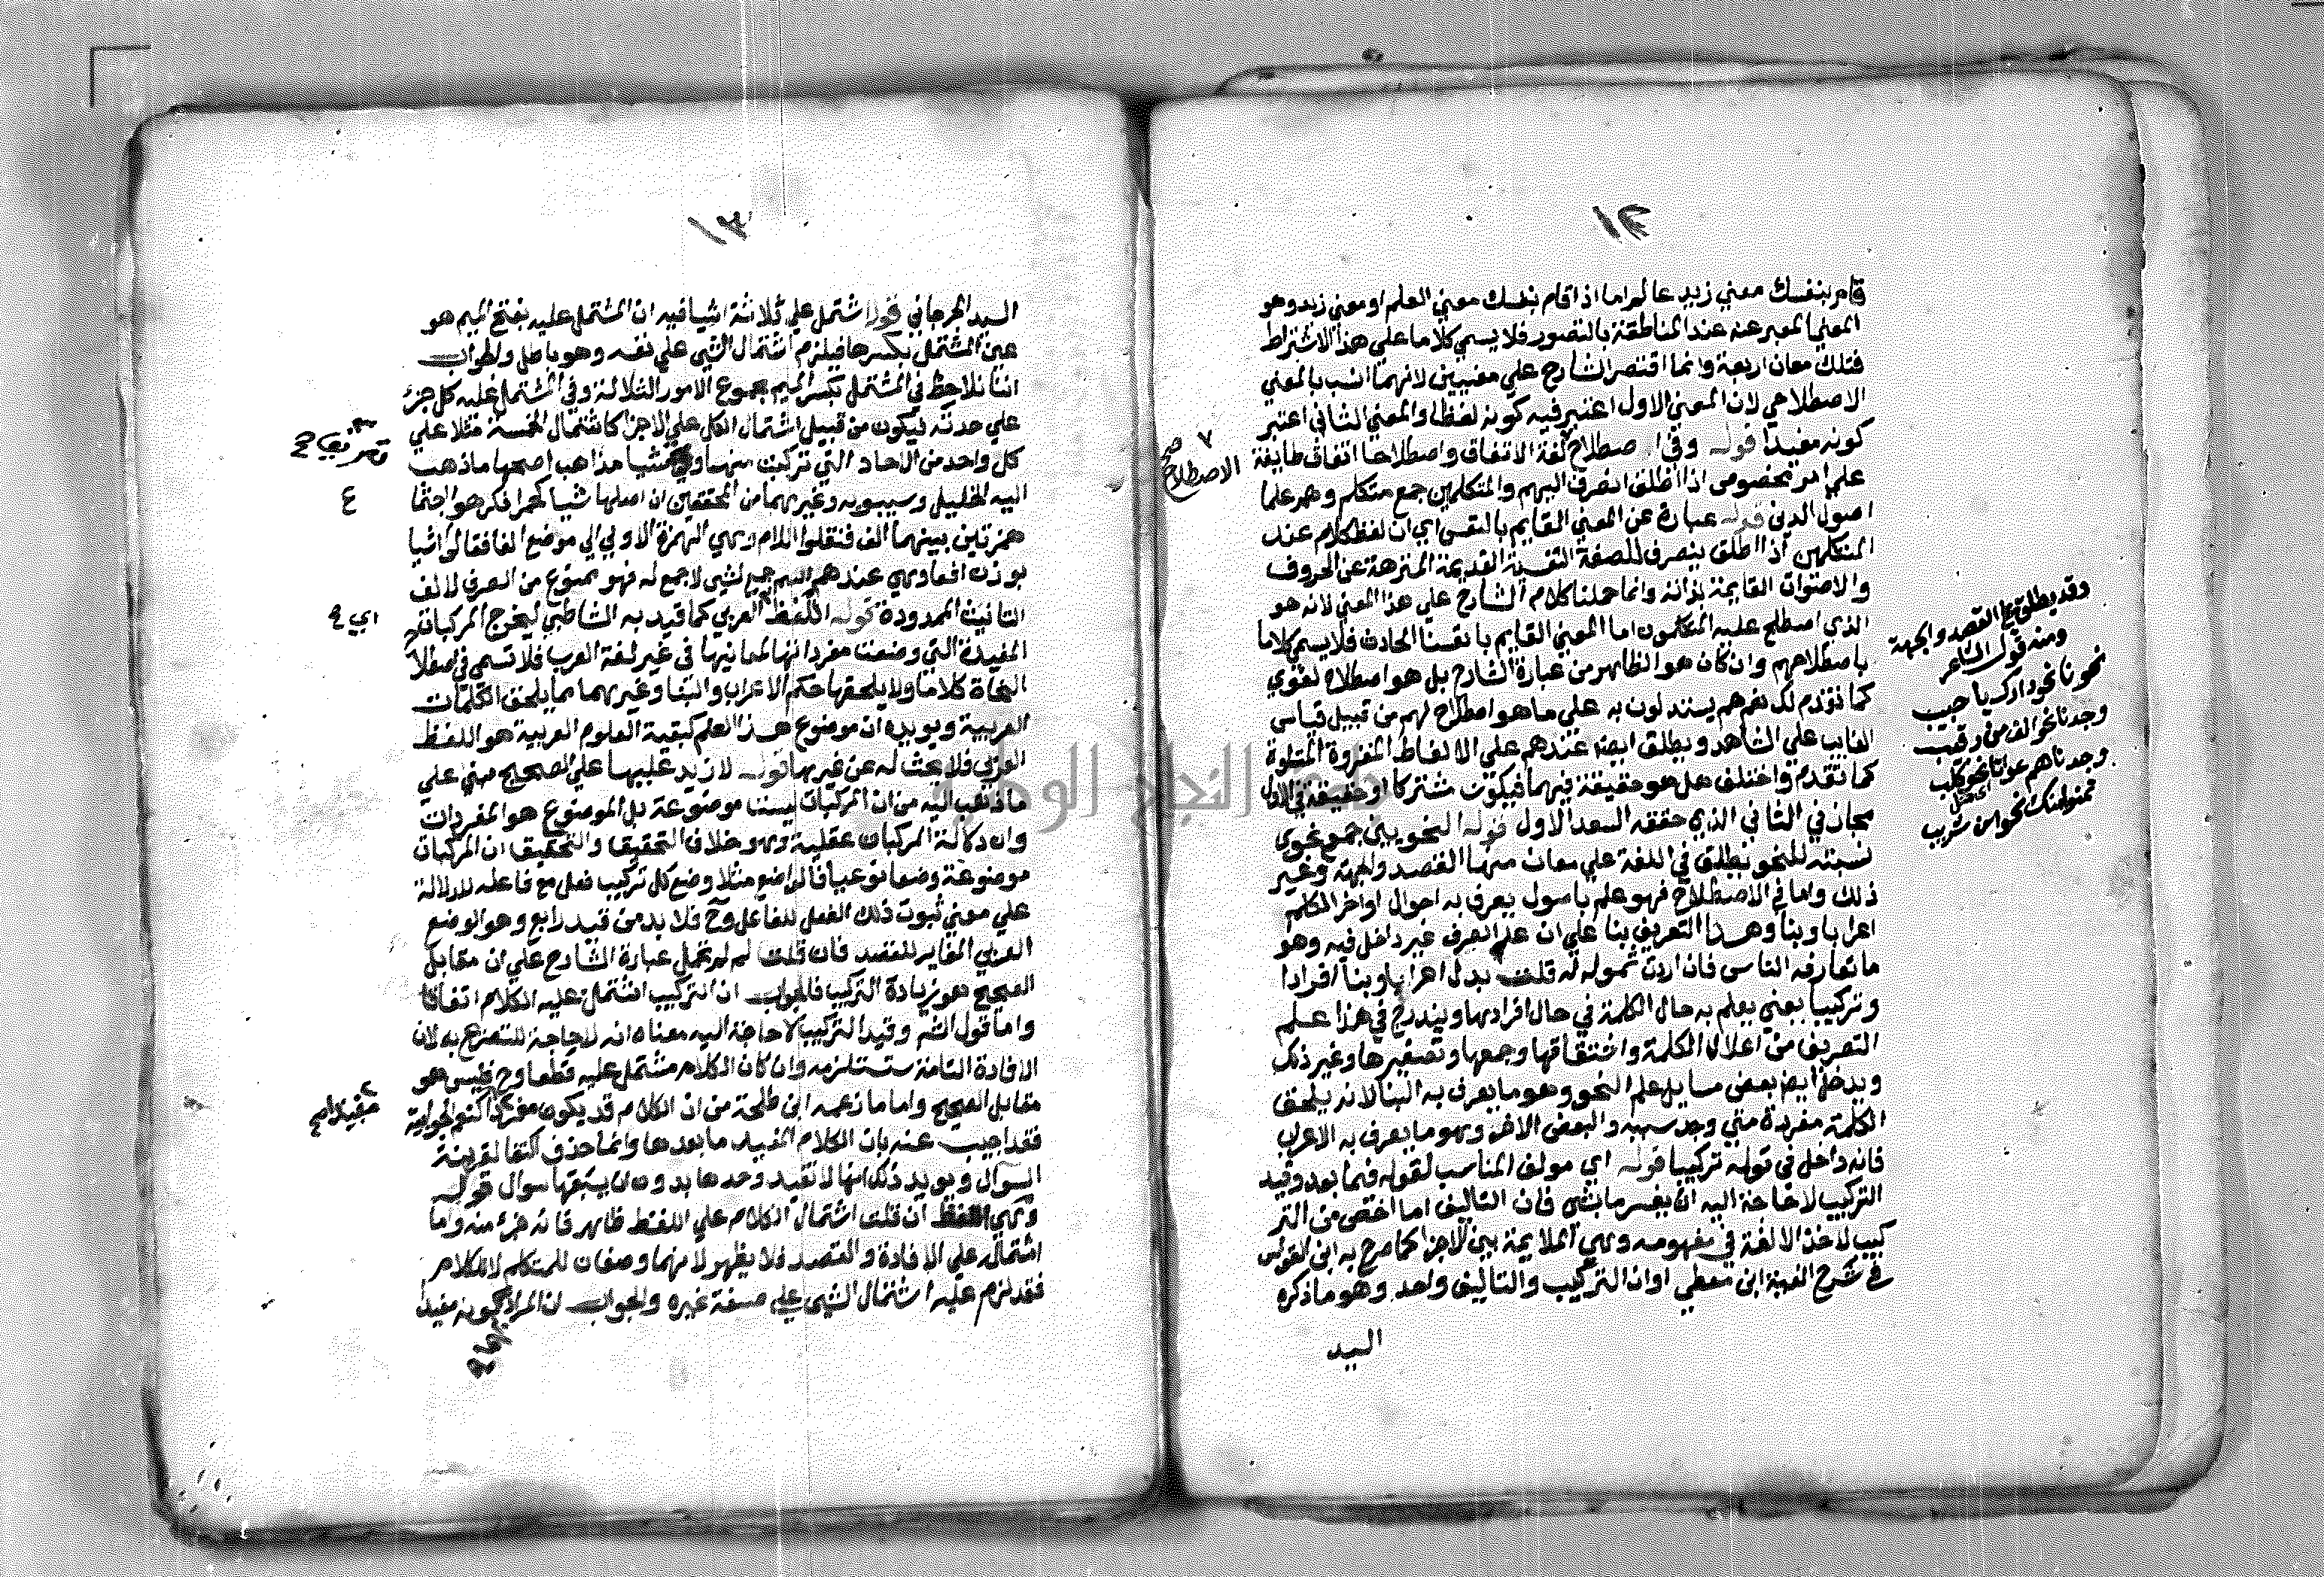 ١٢
قام بنفسك معني زيد عالم اما اذا قام بنفسك معني العلم او معني زيد وهو
المعني المعبر عنه عند المناطقة بالتصور فلا يسمي كلاما علي هذا الاشتراط
فتلك معان اربعة وانما اقتصر الشارح علي معنيين لانهما انسب بالمعني
الاصطلاحي لان المعني الاول اعتبر فيه كونه لفظا والمعني الثاني اعتبر
كونه مفيدا قوله وفي اصطلاح لغة الاتفاق واصطلاحا اتفاق طايفة
علي امر مخصوص اذا اطلق انصرف اليهم والمتكلمين جمع متكلم وهم علما
اصول الدين قوله عبارة عن المعني القايم بالنفس اي ان لفظ كلام عند
المتكلمين اذا اطلق ينصرف للصفة النفسية القديمة المنزهة عن الحروف
والاصوات القايمة بذاته وانما حملنا كلام الشارح علي هذا المعني لانه هو
الذي اصطلح عليه المتكلمون اما المعني القايم بانفسنا الحادث فلا يسمي كلاما
باصطلاحهم وان كان هو الظاهر من عبارة الشارح بل هو اصطلاح لغوي
كما تقدم لك نعم هم يستدلون به علي ما هو اصطلاح لهم من قبيل قياس
الغايب علي الشاهد ويطلق ايضا عندهم علي الالفاظ المقروة المتلوة
كما تقدم واختلف هل هو حقيقة فيهما فيكون مشتركا او حقيقة في الاول
مجاز في الثاني الذي حققه السعد الاول قوله النحويين جمع نحوي
نسبته للنحو يطلق في اللغة علي معان منها القصد والجهة وغير
ذلك واما في الاصطلاح فهو علم باصول يعرف به احوال اواخر الكلم
اعرابا وبناً وهذا التعريف بنا علي ان علم الصرف غير داخل فيه وهو
ما تعارفه الناس فان اردت شموله له قلت بدل اعرابا وبنا افرادا
وتركيبا يعني يعلم به حال الكلمة في حال افرادها ويندرج في هذا علم
التصريف من اعلال الكلمة واشتقاقها وجمعها وتصغيرها وغير ذلك
ويدخل ايضا بعض مسايل علم النحو وهو ما يعرف به البنا لانه يلحق
الكلمة مفردة متي وجد سببه والبعض الاخر وهو ما يعرف به الاعراب
فانه داخل في قوله تركيبا قوله اي مولف المناسب لقوله فيما بعد وقيد
التركيب لا حاجة اليه ان يفسر ما بشي فان التاليف اما اخص من التر
كيب لاخذ الالفة في مفهومه وهي الملايمة بين الاجزا كما صرح به ابن القواس
في شرح الفية ابن معطي او ان التركيب والتاليف واحد وهو ما ذكره
السيد
٧
الاصطلاح صح
وقد يطلق علي القصد والجهة
ومنه قول الشاعر
نحونا نحو دارك يا حبيب
وجدنا نحو الف من رقيب
وجدناهم عواتا نحو كلب
اي مثل
تمنوا منك نحوا من شريب
١٣
السيد الجرجاني قوله اشتمل علي ثلاثة اشيا فيه ان المشتمل عليه بفتح الميم هو
عين المشتمل بكسرها فيلزم اشتمال الشي علي نفسه وهو باطل والجواب
اننا نلاحظ في المشتمل بكسر الميم مجموع الامور الثلاثة وفي المشتمل عليه كل جزء
علي حدته فيكون من قبيل اشتمال الكل علي الاجزا كاشتمال الخمسة مثلا علي
كل واحد من الاحاد التي تركبت منها وفي اشيا مذاهب اصحها ما ذهب
اليه الخليل وسيبويه وغيرهما من المحققين ان اصلها شيا كحمرا فكرهوا اجتما
همزتين بينهما الف فنقلوا اللام وهي الهمزة الاولي الي موضع الفا فقالوا اشيا
بوزن لفعا وهي عندهم اسم جمع لشي لا جمع له فهو ممنوع من الصرف لالف
التانيث الممدودة قوله اللفظ العربي كما قيد به الشاطبي ليخرج المركبات
المفيدة التي وضعت مفرداتها لمعانيها في غير لغة العرب فلا تسمي في اصطلا
النحاة كلاما ولا يلحقها حكم الاعراب والبنا وغيرهما مما يلحق الكلمات
العربية ويويده ان موضوع هذا العلم كبقية العلوم العربية هو اللفظ
العربي فلا بحث له عن غيرها قوله لا زيد عليها علي الصحيح مبني علي
ما ذهب اليه من ان المركبات ليست موضوعة بل الموضوع هو المفردات
وان دلالة المركبات عقلية وهو خلاف التحقيق والتحقيق ان المركبات
موضوعة وضعا نوعيا فالواضع مثلا وضع كل تركيب فعل مع فاعله للدلالة
علي معني ثبوت ذلك الفعل للفاعل وح فلا بد من قيد رابع وهو الوضع
العربي المغاير للقصد فان قلت لم لم تحمل عبارة الشارح علي ان مقابل
الصحيح هو زيادة التركيب فالجواب ان التركيب اشتمل عليه الكلام اتفاقا
واما قول الش وقيد التركيب لا حاجة اليه معناه انه لا حاجة للتصريح به لان
الافادة التامة تستلزمه وان كان الكلام مشتمل عليه قطعا وح فليس هو
مقابل الصحيح واما ما زعمه ابن طلحة من ان الكلام قد يكون مفردا كنعم الجوابية
فقد اجيب عنه بان الكلام المفيد ما بعدها وانما حذف اكتفا لقرينة
السوال ويويد ذلك انها لا تفيد وحدها بدون ان يسبقها سوال قوله
وهي اللفظ ان قلت اشتمال الكلام علي اللفظ ظاهر فانه جزء منه واما
اشتماله علي الافادة والقصد فلا يظهر لانهما وصفان للمتكلم لا للكلام
فقد لزم عليه اشتمال الشي علي صفة غيره والجواب ان المراد كونه مفيدا
ع
اي